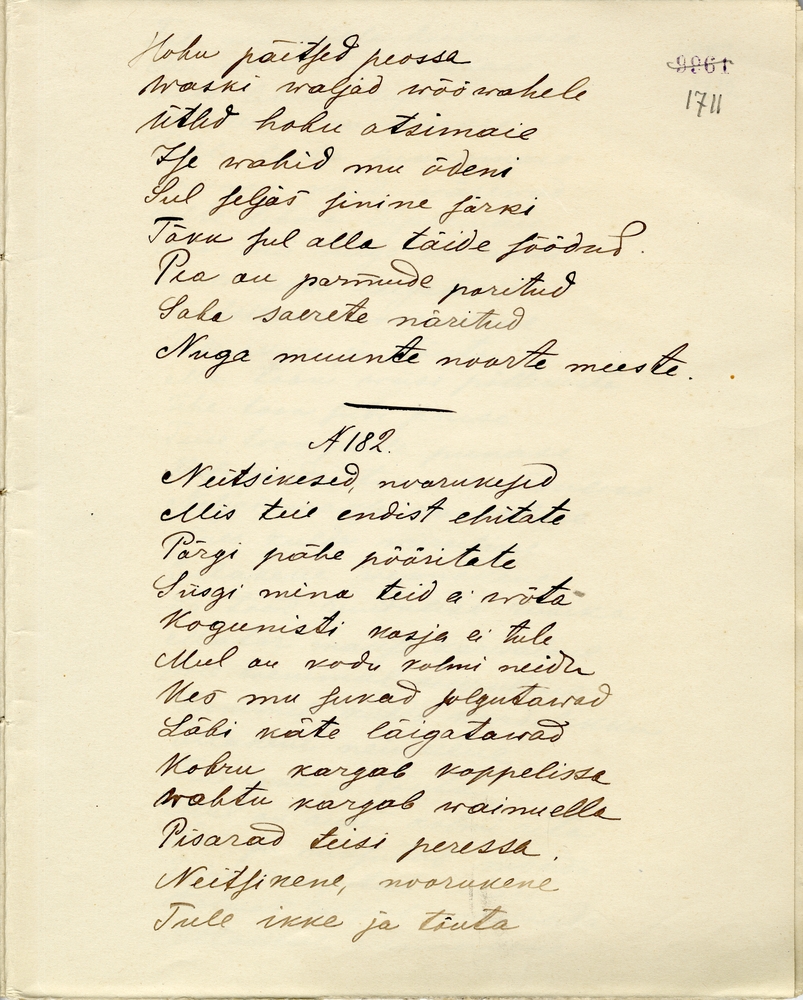 Hobu päitsed peossa
9961
Waski waljad wöö wahele
1711
Ütled hobu otsimaie
Ise wahid mu õdeni
Sul seljas sinine särki
Täku sul alla täide söödud.
Pea on parmude poritud
Saba saerete näritud
Nuga muunte noorte meeste.
N 182.
Neitsikesed, noorukesed
Mis teie endist ehitate
Pärgi pähe pööritate
Siisgi mina teid ei wõta
Kogunisti kosja ei tule
Mul on kodu kolmi neidu
Kes mu sukad solgutawad
Läbi käte läigatawad
Kobru kargab koppelissa
Wahtu kargab wainuella
Pisarad teisi peressa.
Neitsikene, noorukene
Tule ikke ja tõuta